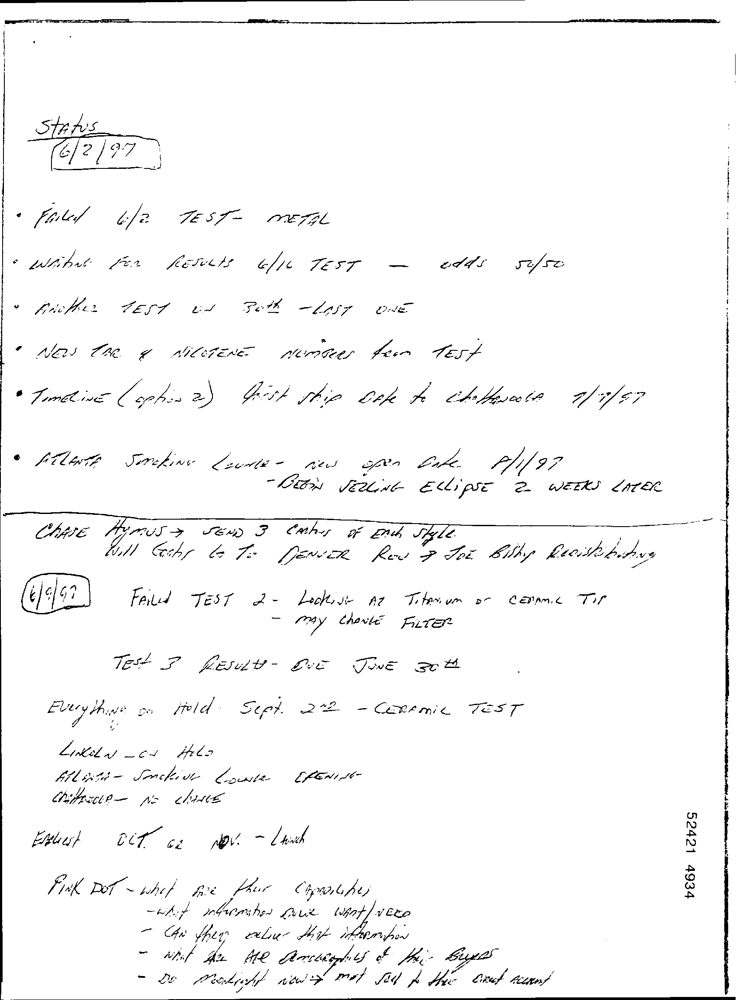 Status
6/2/97
• Failed 6/2 TEST - METAL
• Waiting For Results 6/16 TEST - odds 50/50
• Another TEST on 30th - LAST ONE
• NEW TAR & NICOTENE Numbers from TEST
• TimeLINE (option 2) first ship Date to Chattanooga 7/7/97
• ATLANTA Smoking Lounge - New open Date 8/1/97
- Begin SELLING EClipSE 2 WEEKS LATER
CHASE → SEND 3 of EACH Style
Will to DENVER → JOE
6/9/97 FAILED TEST 2 - Looking AT Titanium or CERAMIC TIP
- MAY CHANGE FILTER
TEST 3 RESULTS - DUE JUNE 30th
Everything on Hold Sept. 2nd - CERAMIC TEST
LINCOLN - ON HOLD
ATLANTA - Smoking Lounge OPENING
Chattanooga - NO CHANGE
Earliest OCT. or NOV. - Launch
PINK DOT - what are their Capabilities
- what information WANT/NEED
- CAN they deliver that information
- what are the demographics of their Buyers
- Do Moonlight now →
52421 4934